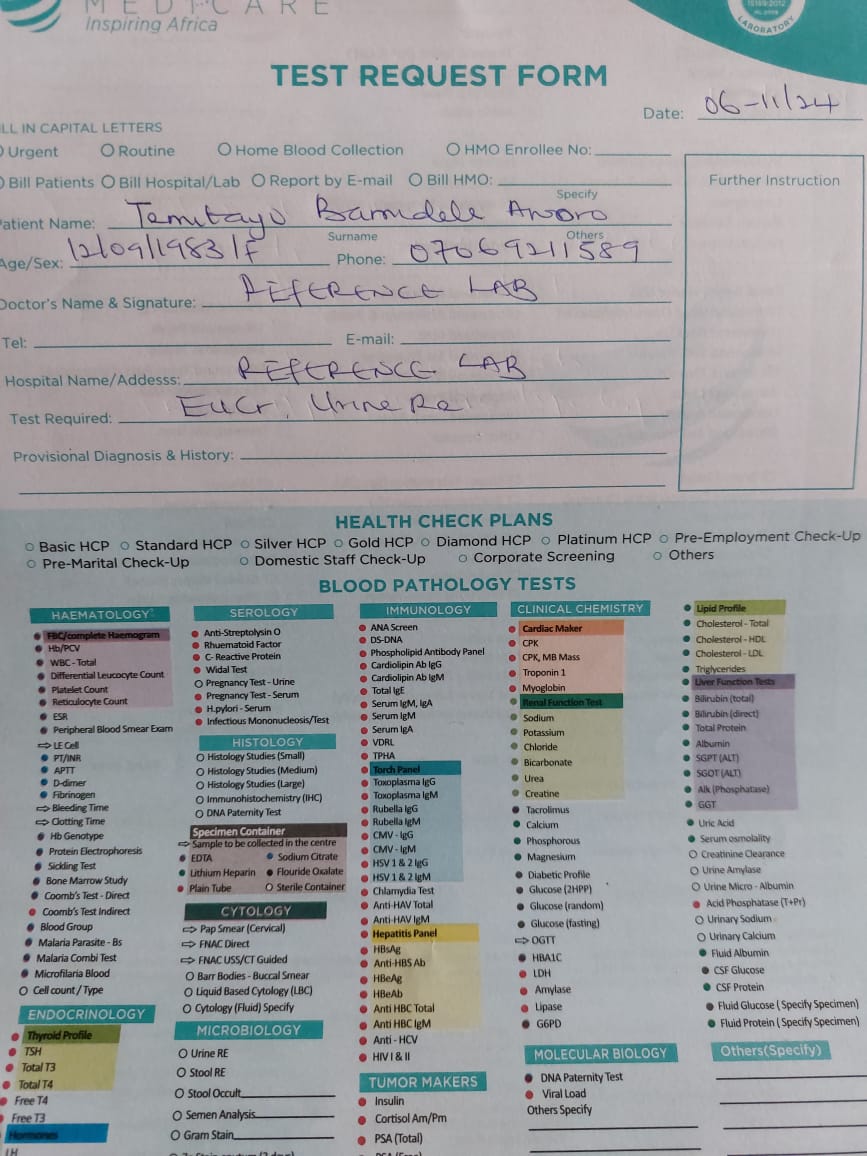 MEDICARE
Inspiring Africa
LABORATORY
TEST REQUEST FORM
Date: 06-11/24
ILL IN CAPITAL LETTERS
Urgent O Routine O Home Blood Collection O HMO Enrollee No:
Bill Patients O Bill Hospital/Lab O Report by E-mail O Bill HMO:
Specify
Further Instruction
Patient Name: Temitayo Bamidele Aworo
Surname Others
Age/Sex: 12/09/1983/F Phone: 07069211589
Doctor's Name & Signature: REFERENCE LAB
Tel: E-mail:
Hospital Name/Addesss: REFERENCE LAB
Test Required: EUCr, Urine Re
Provisional Diagnosis & History:
HEALTH CHECK PLANS
Basic HCP Standard HCP Silver HCP Gold HCP Diamond HCP Platinum HCP Pre-Employment Check-Up
Pre-Marital Check-Up Domestic Staff Check-Up Corporate Screening Others
BLOOD PATHOLOGY TESTS
HAEMATOLOGY
FBC/complete Haemogram
Hb/PCV
WBC - Total
Differential Leucocyte Count
Platelet Count
Reticulocyte Count
ESR
Peripheral Blood Smear Exam
LE Cell
PT/INR
APTT
D-dimer
Fibrinogen
Bleeding Time
Clotting Time
Hb Genotype
Protein Electrophoresis
Sickling Test
Bone Marrow Study
Coomb's Test - Direct
Coomb's Test Indirect
Blood Group
Malaria Parasite - Bs
Malaria Combi Test
Microfilaria Blood
Cell count / Type
ENDOCRINOLOGY
Thyroid Profile
TSH
Total T3
Total T4
Free T4
Free T3
Hormones
LH
SEROLOGY
Anti-Streptolysin O
Rhuematoid Factor
C- Reactive Protein
Widal Test
Pregnancy Test - Urine
Pregnancy Test - Serum
H.pylori - Serum
Infectious Mononucleosis/Test
HISTOLOGY
Histology Studies (Small)
Histology Studies (Medium)
Histology Studies (Large)
Immunohistochemistry (IHC)
DNA Paternity Test
Specimen Container
Sample to be collected in the centre
EDTA Sodium Citrate
Lithium Heparin Flouride Oxalate
Plain Tube Sterile Container
CYTOLOGY
Pap Smear (Cervical)
FNAC Direct
FNAC USS/CT Guided
Barr Bodies - Buccal Smear
Liquid Based Cytology (LBC)
Cytology (Fluid) Specify
MICROBIOLOGY
Urine RE
Stool RE
Stool Occult
Semen Analysis
Gram Stain
IMMUNOLOGY
ANA Screen
DS-DNA
Phospholipid Antibody Panel
Cardiolipin Ab IgG
Cardiolipin Ab IgM
Total IgE
Serum IgM, IgA
Serum IgM
Serum IgA
VDRL
TPHA
Torch Panel
Toxoplasma IgG
Toxoplasma IgM
Rubella IgG
Rubella IgM
CMV - IgG
CMV - IgM
HSV 1 & 2 IgG
HSV 1 & 2 IgM
Chlamydia Test
Anti-HAV Total
Anti-HAV IgM
Hepatitis Panel
HBsAg
Anti-HBS Ab
HBeAg
HBeAb
Anti HBC Total
Anti HBC IgM
Anti - HCV
HIV I & II
TUMOR MAKERS
Insulin
Cortisol Am/Pm
PSA (Total)
CLINICAL CHEMISTRY
Cardiac Maker
CPK
CPK, MB Mass
Troponin 1
Myoglobin
Renal Function Test
Sodium
Potassium
Chloride
Bicarbonate
Urea
Creatine
Tacrolimus
Calcium
Phosphorous
Magnesium
Diabetic Profile
Glucose (2HPP)
Glucose (random)
Glucose (fasting)
OGTT
HBA1C
LDH
Amylase
Lipase
G6PD
MOLECULAR BIOLOGY
DNA Paternity Test
Viral Load
Others Specify
Lipid Profile
Cholesterol - Total
Cholesterol - HDL
Cholesterol - LDL
Triglycerides
Liver Function Tests
Bilirubin (total)
Bilirubin (direct)
Total Protein
Albumin
SGPT (ALT)
SGOT (ALT)
Alk (Phosphatase)
GGT
Uric Acid
Serum osmolality
Creatinine Clearance
Urine Amylase
Urine Micro - Albumin
Acid Phosphatase (T+Pr)
Urinary Sodium
Urinary Calcium
Fluid Albumin
CSF Glucose
CSF Protein
Fluid Glucose ( Specify Specimen)
Fluid Protein ( Specify Specimen)
Others(Specify)